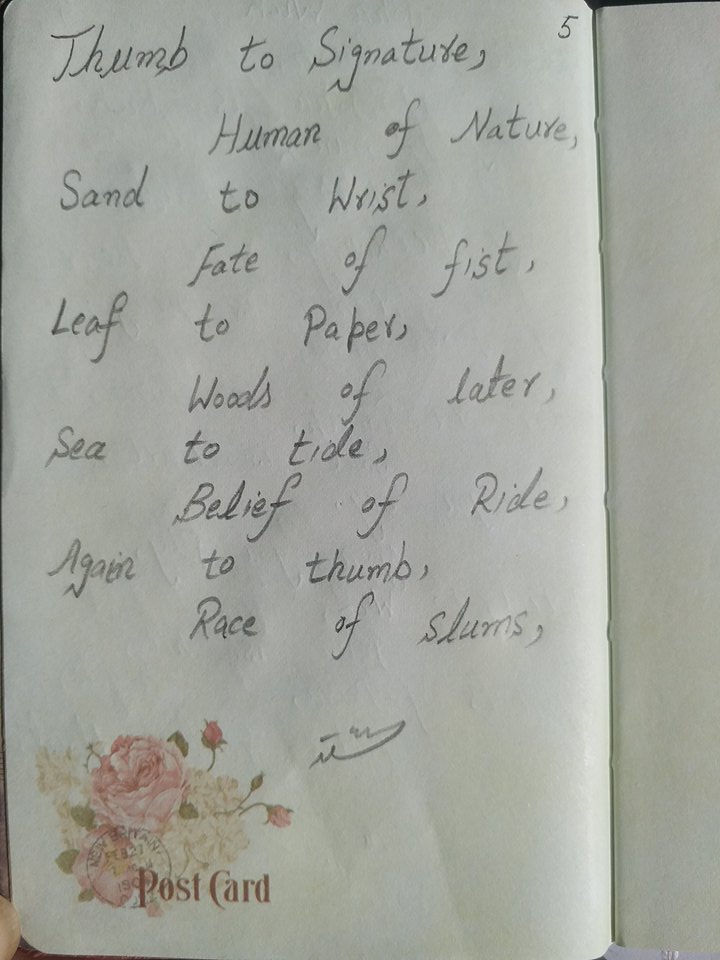 5
Thumb to Signature,
Human of Nature,
Sand to Wrist,
Fate of fist,
Leaf to Paper,
Woods of later,
Sea to tide,
Belief of Ride,
Again to thumb,
Race of slums,
Post Card